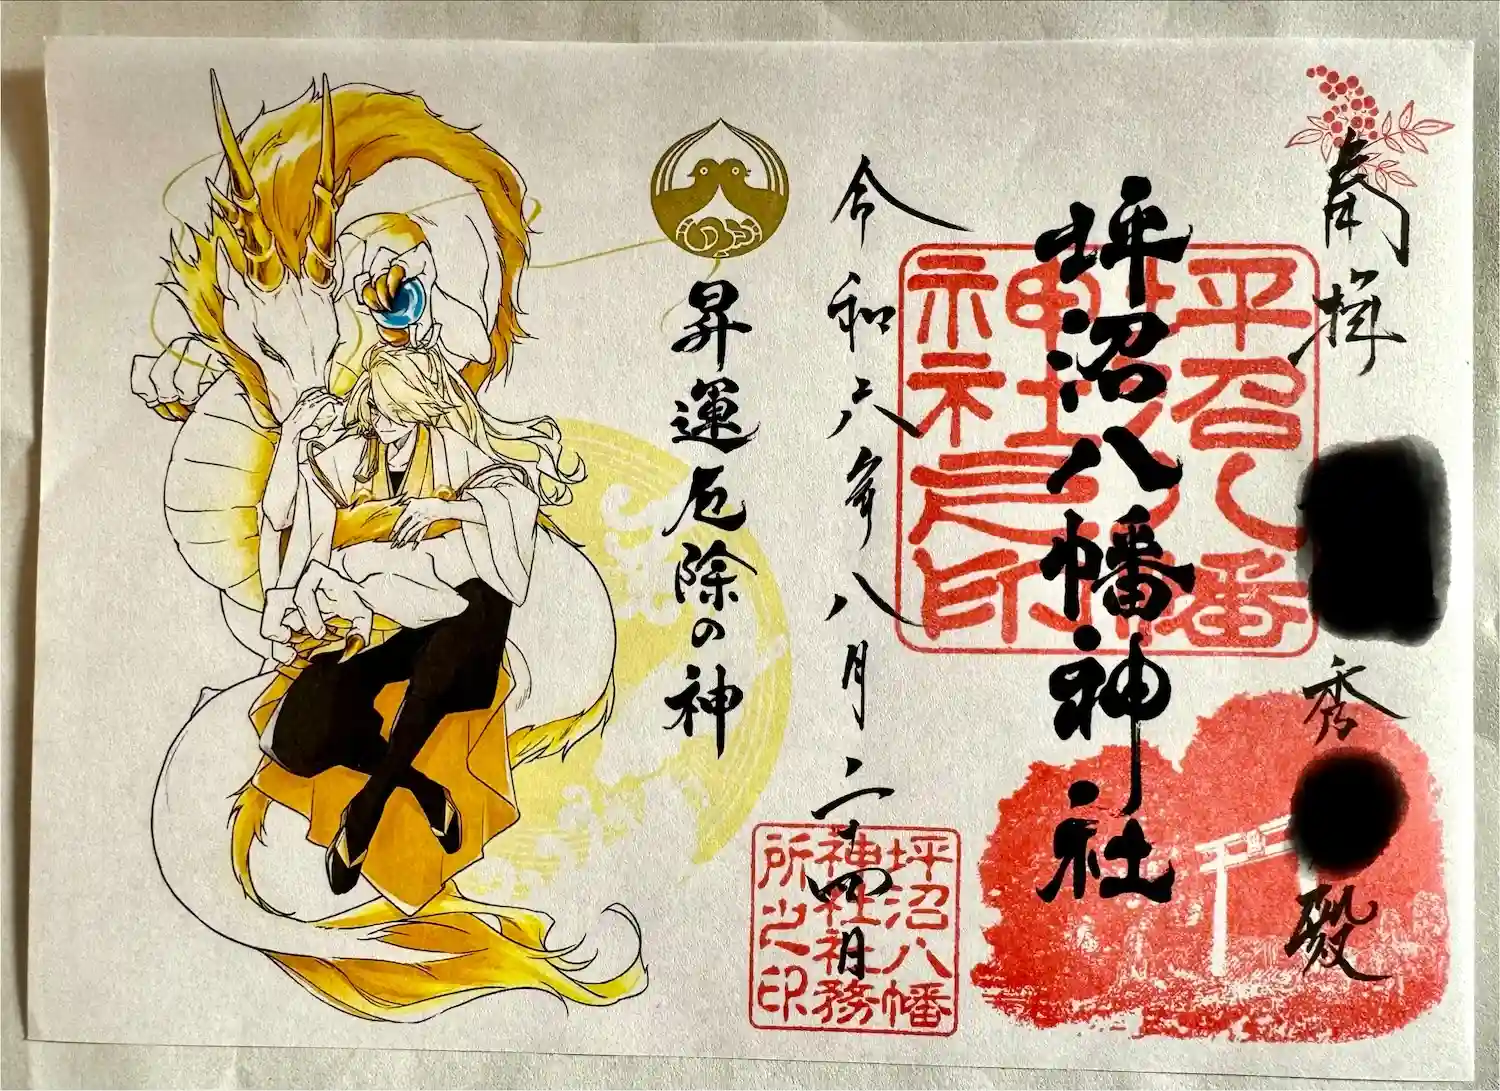 奉拝
秀
殿
坪沼八幡神社
平召八番
神社
神社之印
令和六年八月二十四日
坪沼八幡
神社社務
所之印
昇運厄除の神